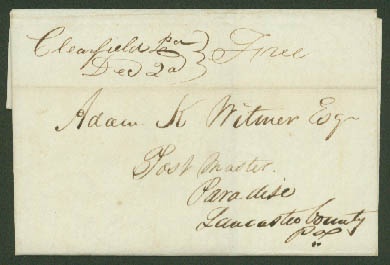 Clearfield Pa } Free
Dec 2d
Adam K Witmer Esqr
Post Master
Paradise
Lancaster County
Pa